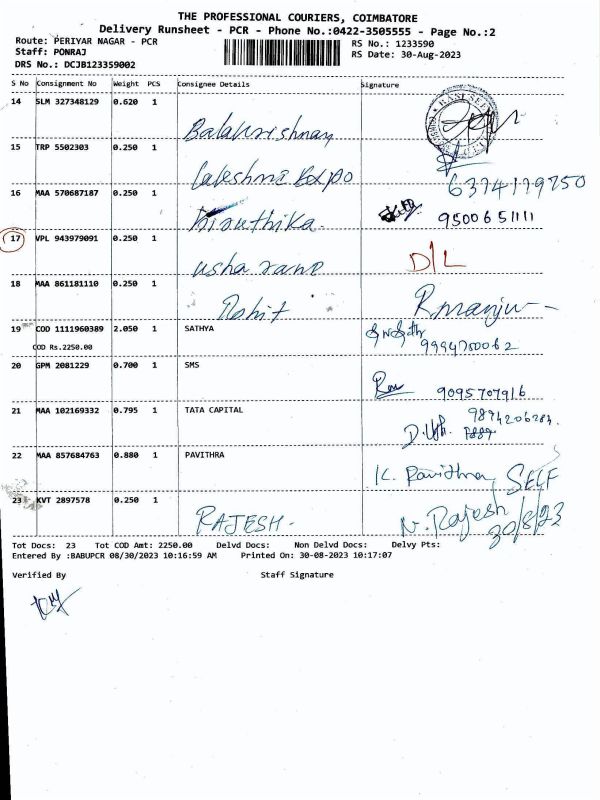 THE PROFESSIONAL COURIERS, COIMBATORE
Delivery Runsheet - PCR - Phone No.:0422-3505555 - Page No.:2
Route: PERIYAR NAGAR - PCR RS No.: 1233590
Staff: PONRAJ RS Date: 30-Aug-2023
DRS No.: DCJB123359002
S No Consignment No Weight PCS Consignee Details Signature
14 SLM 327348129 0.620 1 Balakrishnan
15 TRP 5502303 0.250 1 Lakshmi Expo 6374179750
16 MAA 570687187 0.250 1 Kiruthika. 9500651111
17 VPL 943979091 0.250 1 usha rani D/L
18 MAA 861181110 0.250 1 Rohit R.manju
19 COD 1111960389 2.050 1 SATHYA
COD Rs.2250.00 9994750062
20 GPM 2081229 0.700 1 SMS 9095707916
21 MAA 102169332 0.795 1 TATA CAPITAL 9894206284.
22 MAA 857684763 0.880 1 PAVITHRA K. Pavithra, SELF
23 KVT 2897578 0.250 1 RAJESH- N. Rajesh 30/8/23
Tot Docs: 23 Tot COD Amt: 2250.00 Delvd Docs: Non Delvd Docs: Delvy Pts:
Entered By :BABUPCR 08/30/2023 10:16:59 AM Printed On: 30-08-2023 10:17:07
Verified By Staff Signature